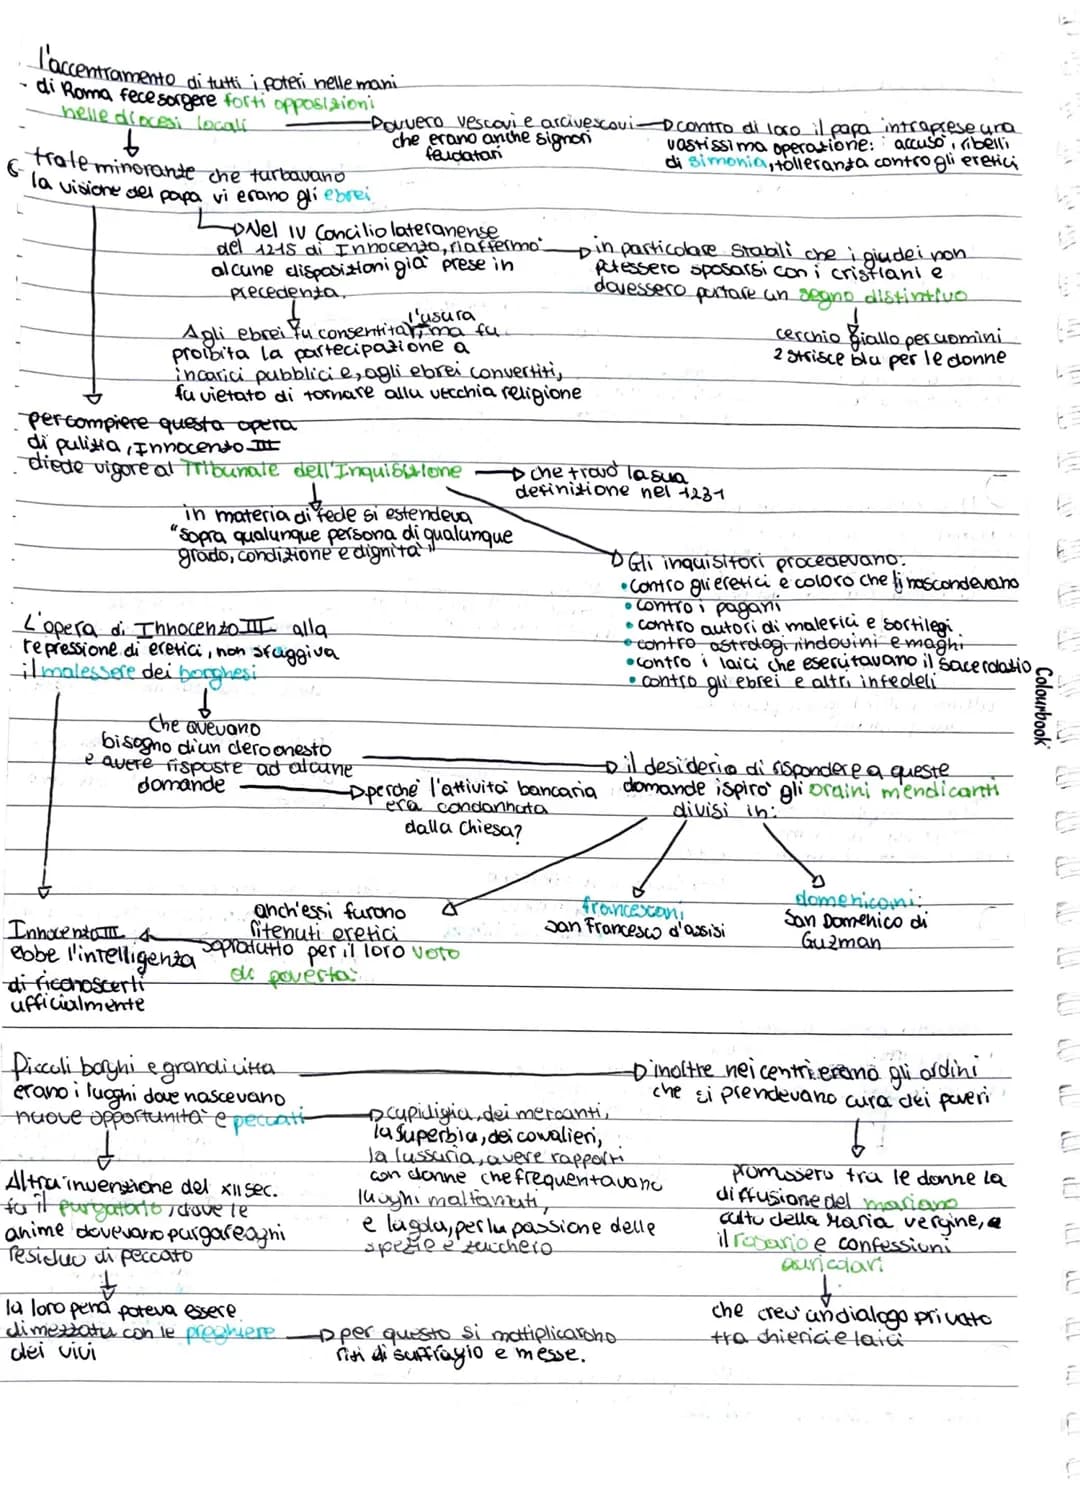 l'accentramento di tutti i poteri nelle mani
di Roma fece sorgere forti opposizioni
nelle diocesi locali
ovvero vescovi e arcivescovi
che erano anche signori
feudatari
contro di loro il papa intraprese una
vastissima operazione: accusò i ribelli
di simonia, tolleranza contro gli eretici
tra le minoranze che turbavano
la visione del papa vi erano gli ebrei
Nel IV Concilio lateranense
del 1215 di Innocenzo, riaffermo'
alcune disposizioni già prese in
precedenza.
in particolare stabilì che i giudei non
potessero sposarsi con i cristiani e
dovessero portare un segno distintivo
cerchio giallo per uomini
2 strisce blu per le donne
l'usura
Agli ebrei fu consentita, ma fu
proibita la partecipazione a
incarici pubblici e, agli ebrei convertiti,
fu vietato di tornare alla vecchia religione
per compiere questa opera
di pulizia, Innocenzo III
diede vigore al Tribunale dell'Inquisizione
che trovò la sua
definizione nel 1231
in materia di fede si estendeva
"sopra qualunque persona di qualunque
grado, condizione e dignità"
Gli inquisitori procedevano:
•contro gli eretici e coloro che li nascondevano
•contro i pagani
•contro autori di malefici e sortilegi
•contro astrologi, indovini e maghi
•contro i laici che esercitavano il sacerdozio
•contro gli ebrei e altri infedeli
L'opera di Innocenzo III alla
repressione di eretici, non sfuggiva
il malessere dei borghesi
Che avevano
bisogno di un clero onesto
e avere risposte ad alcune
domande
perché l'attività bancaria
era condannata
dalla Chiesa?
il desiderio di rispondere a queste
domande ispirò gli ordini mendicanti
divisi in:
anch'essi furono
ritenuti eretici
sopratutto per il loro voto
di povertà
francescani,
San Francesco d'assisi
domenicani:
San Domenico di
Guzman
Innocenzo III
ebbe l'intelligenza
di riconoscerli
ufficialmente
Piccoli borghi e grandi citta
erano i luoghi dove nascevano
nuove opportunità e peccati
cupidigia, dei mercanti,
la superbia, dei cavalieri,
la lussuria, avere rapporti
con donne che frequentavano
luoghi malfamati,
e la gola, per la passione delle
spezie e zucchero
inoltre nei centri erano gli ordini
che si prendevano cura dei poveri
promossero tra le donne la
diffusione del mariano
culto della Maria vergine,
il rosario e confessioni
auricolari
che creò un dialogo privato
tra chierici e laici
Altra invenzione del XII sec.
fu il purgatorio, dove le
anime dovevano purgare ogni
residuo di peccato
la loro pena poteva essere
dimezzata con le preghiere
dei vivi
per questo si moltiplicarono
riti di suffragio e messe.
Colourbook